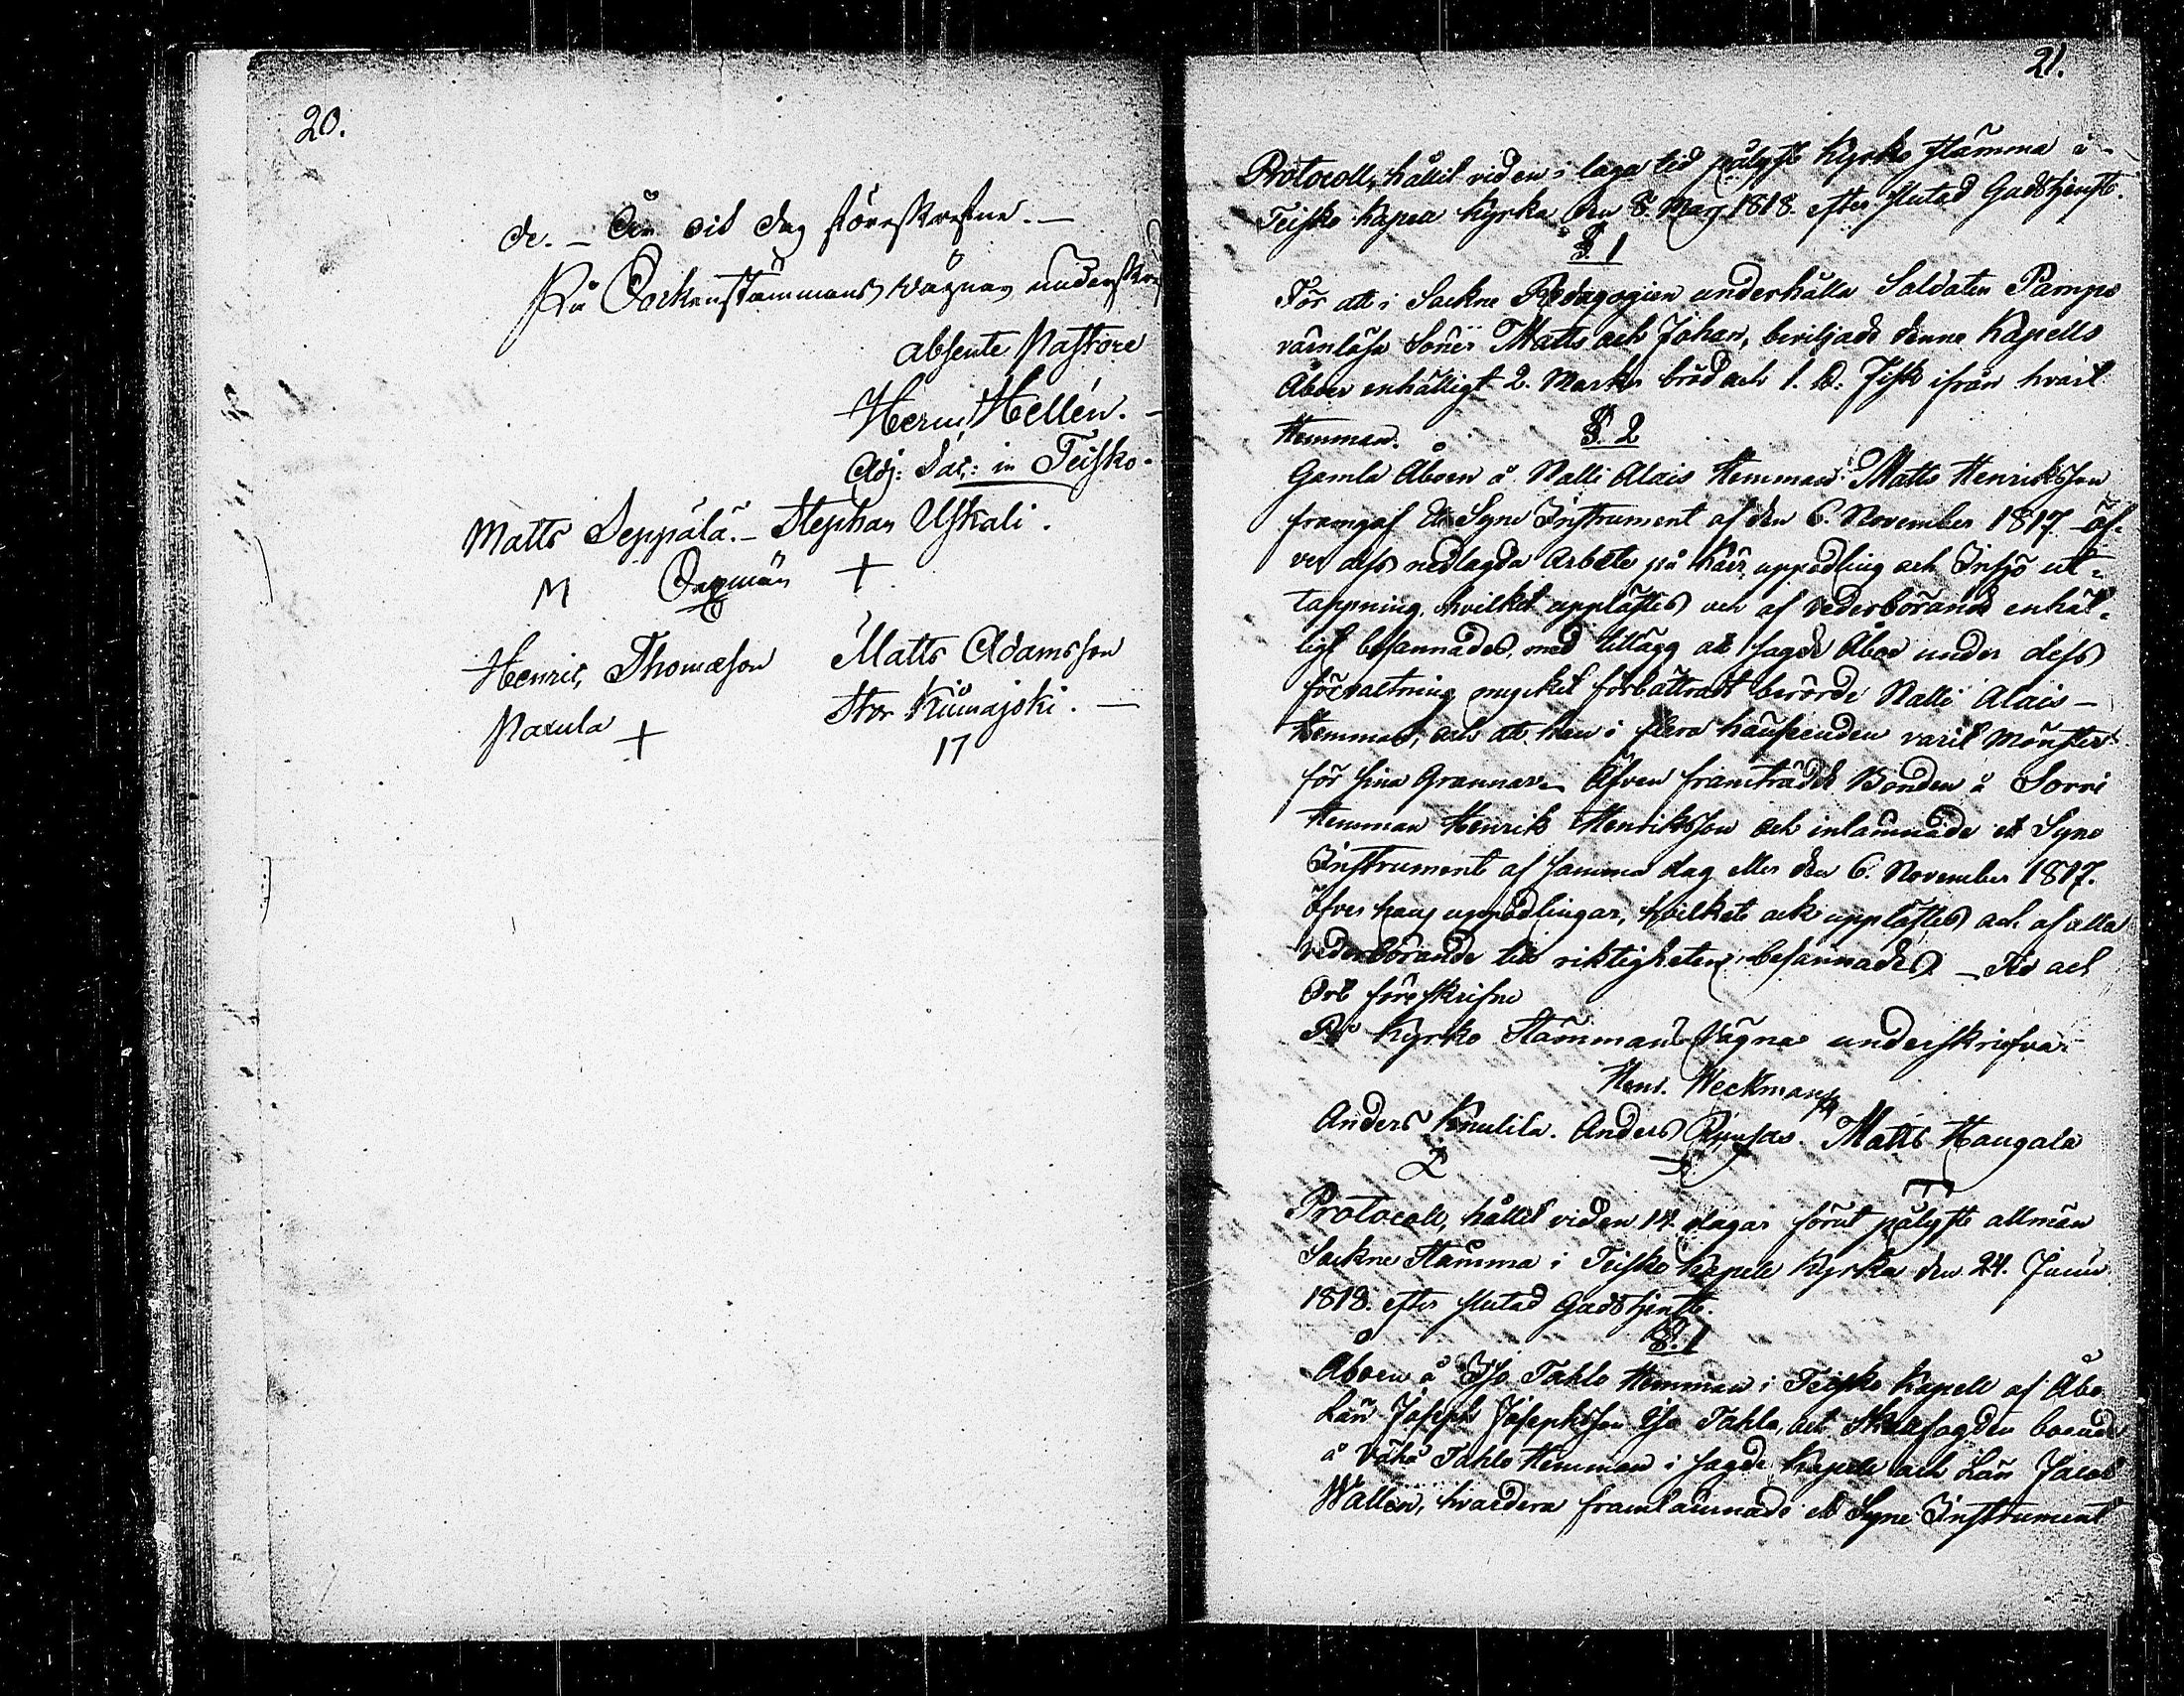 20.
de. – Åhr och dag föreskrefne. –
På Sockenstämmans vägnar underskref
absente Pastore
Henric Hellén. –
Adj: Sac: in Teisko.
Matts Seppälä. – Stephan Uskali.
M +
Henric Thomæson Matts Adamsson
Paxula Stor Kuinajoki. –
+ 17
21.
Protocoll, hållit vid en i laga tid pålyst Kyrko Stämma i
Teisko Kapell Kyrka den 8. Marz 1818. efter slutad Gudstjenst.
§. 1
För att i Sockne Pedagogien underhålla Soldaten Pampo
värnlösa Söner Matts och Johan, beviljade denne Kapells
Åboer enhälligt 2. Marker bröd och 1. ℔. Fisk ifrån hvart
Hemman.
§. 2
Gamla Åboen å Nalli Alais Hemman Matts Henriksson
framgaf ett Syne Instrument af den 6. November 1817 öf-
ver dess nedlagda Arbete på Kärr uppodling och Insjö ut-
tappning, hvilket upplästes och af vederbörande enhäl-
ligt besannades, med tillägg att sagde Åboe under dess
förvaltning mycket förbättrat berörde Nalli Alais –
Hemman, och att han i flera hänseenden varit Mönster
för sina Grannar. Äfven framträdde Bonden å Sorri
Hemman Henrik Henriksson och inlämnade et Syne
Instrument af samma dag eller den 6. November 1817.
öfver hans uppodlingar, hvilket ock upplästes och af alla
vederbörande till riktigheten besannades – Tid och
Ort föreskrifne
På Kyrko Stämmans Vägnar underskrifva
Henr. Weckman
Anders Knulila. Anders Matts Haugala
Protocoll, hållit vid en 14. dagar förut pålyst allmän
Sockne Stämma i Teisko Kapell Kyrka den 24. Junii
1818. efter slutad Gudstjenst.
§. 1
Åboen å Iso Tahlo Hemman i Teisko Kapell af Åbo
Län Joseph Josephsson Iso Tahlo, och boende
å Vähä Tahlo Hemman i sagde Kapell och Län Jacob
Wallén, hvardera framlämnade ett Syne Instrument